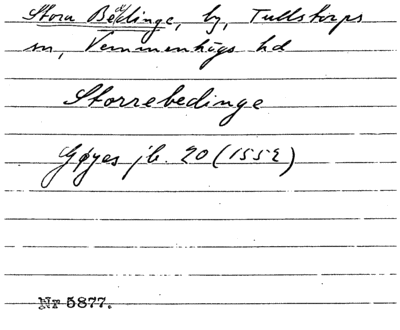 Stora Beddinge, by, Tullstorps
sn, Vemmenhögs hd
Storrebedinge
Gøyes jb. 20 (1552)
Nr 5877.